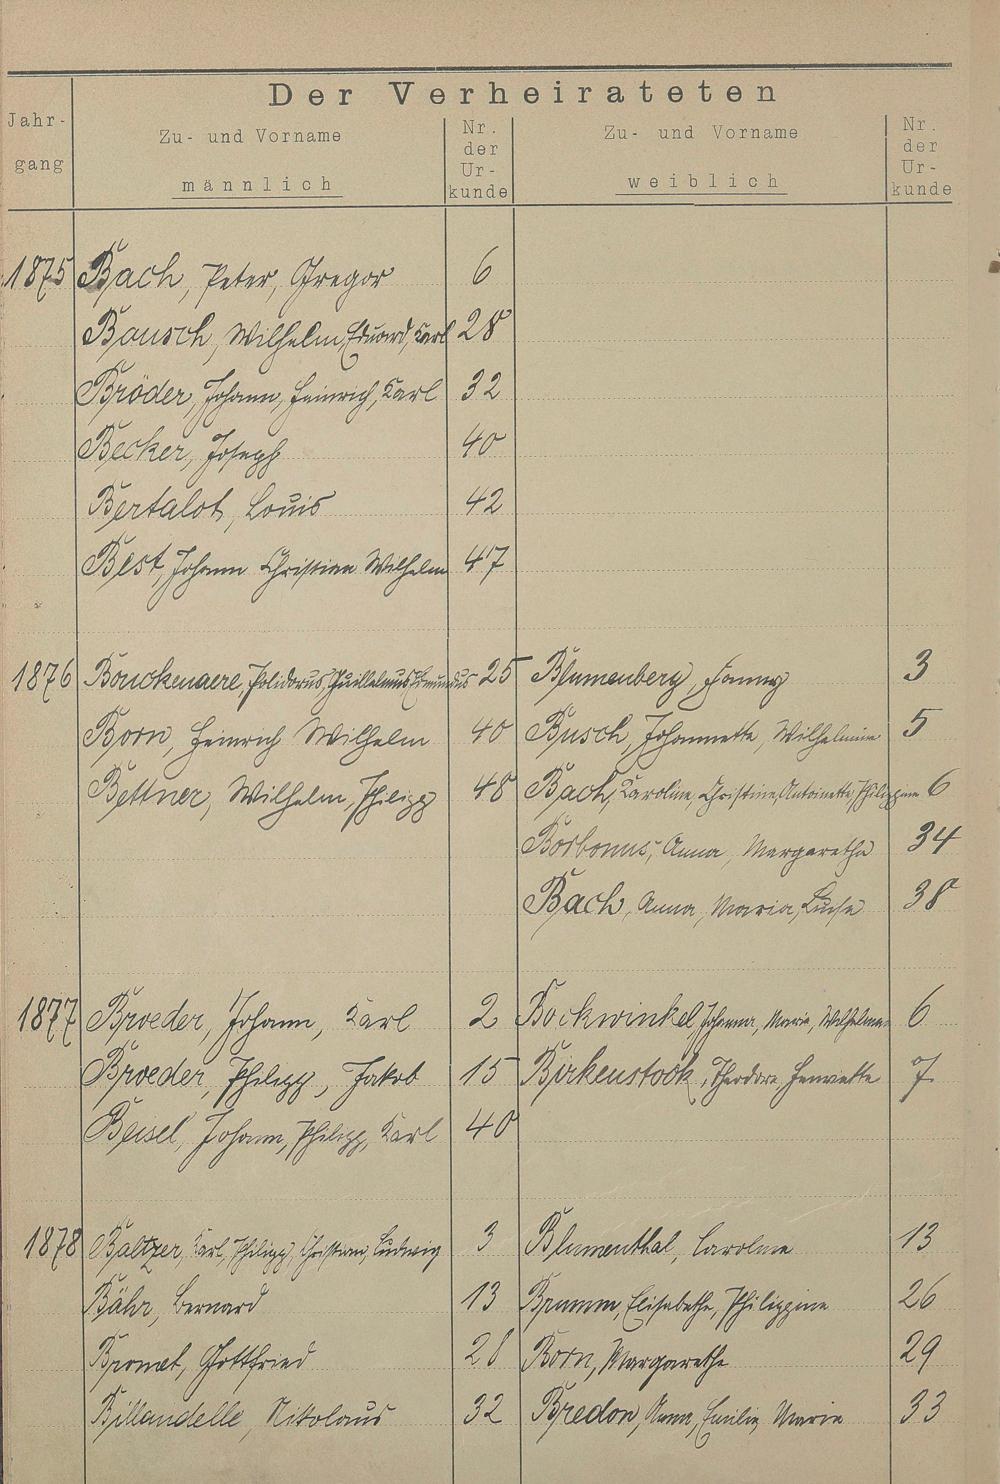 Der Verheirateten
Jahr-
gang
Zu- und Vorname
männlich
Nr.
der
Ur-
kunde
Zu- und Vorname
weiblich
Nr.
der
Ur-
kunde
1875 Bach, Peter, Gregor 6
Bausch, Wilhelm, Eduard, Karl 28
Bröder, Johann, Heinrich, Karl 32
Becker, Joseph 40
Bertalot, Louis 42
Best, Johann Christian Wilhelm 47
1876 Bouckenaere, Polidorus, Guillelmus, Edmundus 25 Blumenberg, Fanny 3
Born, Heinrich Wilhelm 40 Busch, Johannette, Wilhelmine 5
Bettner, Wilhelm, Philipp 48 Bach, Karoline, Christine, Antoinette, Philippine 6
Borbonus, Anna, Margarethe 34
Bach, Anna, Maria, Luise 38
1877 Broeder, Johann, Karl 2 Bockwinkel, Johanna, Maria, Wilhelmine 6
Broeder, Philipp, Jakob 15 Birkenstock, Theodore, Henriette 7
Beisel, Johann, Philipp, Karl 40
1878 Baltzer, Karl, Philipp, Christian, Ludwig 3 Blumenthal, Caroline 13
Bähr, Bernard 13 Brumm, Elisabethe, Philippine 26
Gottfried 28 Born, Margarethe 29
Billaudelle, Nikolaus 32 Bredon, Anna, Emilie, Maria 33